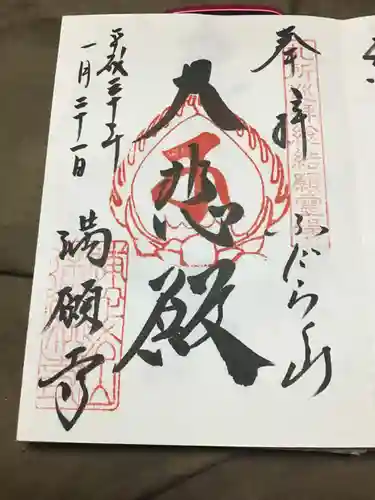 奉拝
ふだら山
大悲殿
平成三十年
一月二十一日
満願寺